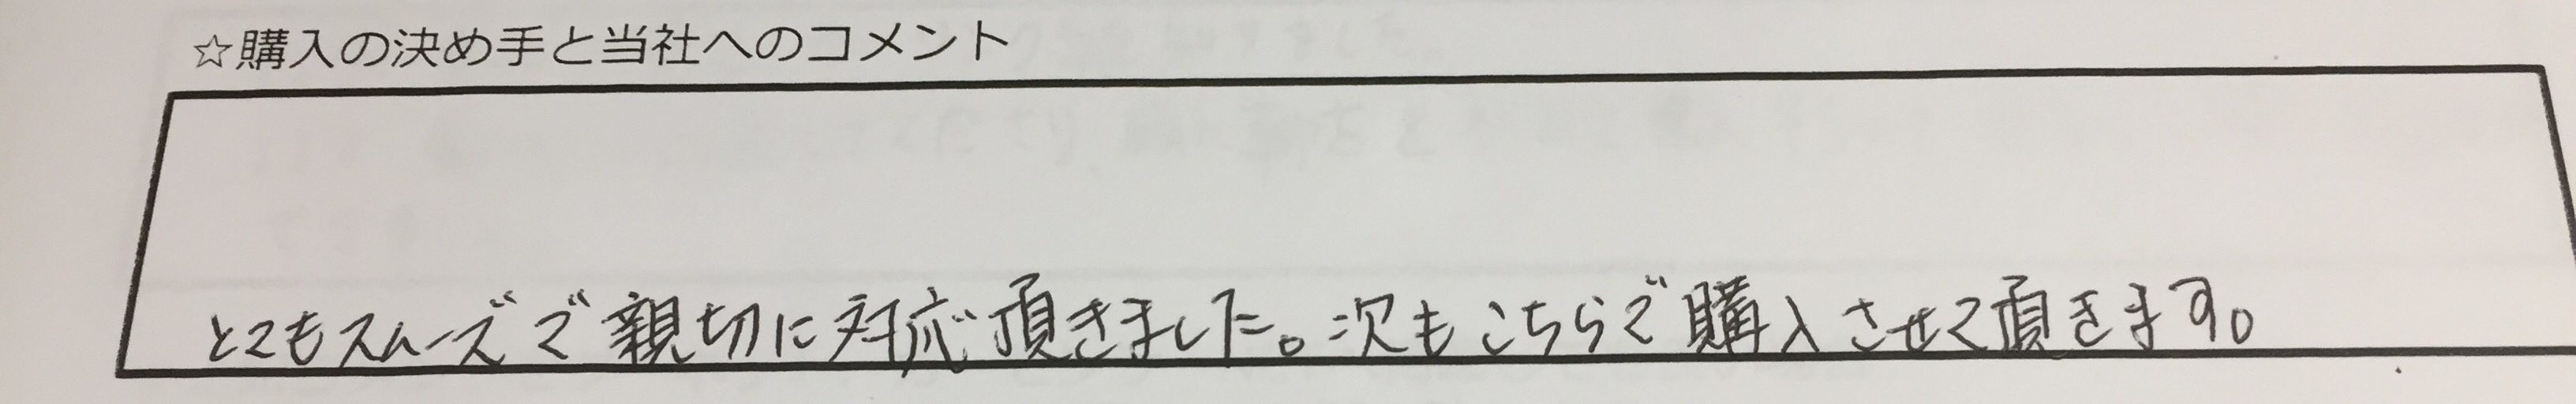 ☆購入の決め手と当社へのコメント
とてもスムーズで親切に対応頂きました。次もこちらで購入させて頂きます。